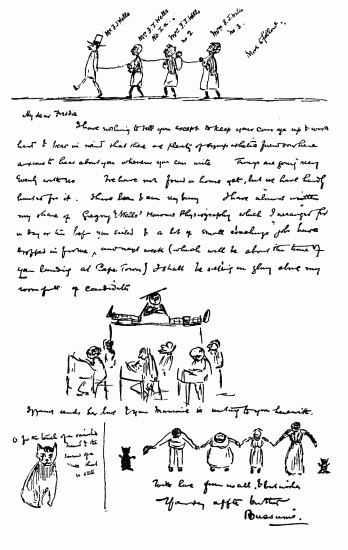 Mr F J Wells
Mrs F J Wells No 1
Mrs F J Wells No 2
Mrs F J Wells No 3
My dear Freddie
I have nothing to tell you except to keep your courage up & work
hard & bear in mind that there are plenty of sympathetic friends here
anxious to hear about you whenever you can write Things are going very
evenly with us We have not found a home yet, but we have hardly
hunted for it. I have been & am very busy I have almost written
my share of Gregory & Wells' Honours Physiography which I arranged for
a day or two before you sailed & a lot of small coachings job have
dropped in for me, and next week (which will be about the time of
you landing at Cape Town) I shall be sitting in glory above my
room full of candidates
sends her love & your Mummie is writing to you herewith.
O for the touch of a vanished
hand & the
sound of a
voice that
is still
With love from us all, & best wishes
Your very affte brother
Bussums.